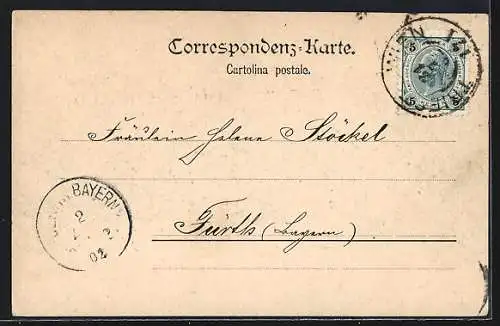 Correspondenz-Karte.
Cartolina postale.
WIEN
5 5
5 5
Fräulein Helene Stöckel
BAYERN
2
02
Fürth (Bayern)